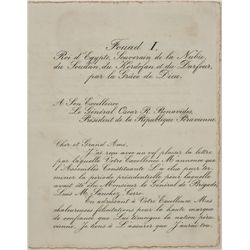 Fouad I,
Roi d'Egypte, Souverain de la Nubie,
du Soudan, du Kordofan et du Darfour,
par la Grâce de Dieu.
A Son Excellence
Le Général Oscar R. Benavides,
Président de la République Péruvienne.
Cher et Grand Ami,
J'ai reçu avec un vif plaisir la lettre
par laquelle Votre Excellence M'annonce que
l'Assemblée Constituante L'a élu pour ter-
miner la période présidentielle pour laquelle
avait été élu Monsieur le Général de Brigade,
Luis M. Sanchez Cerro.
En adressant à Votre Excellence Mes
chaleureuses félicitations pour la haute marque
de confiance que Lui témoigne la nation péru-
vienne, je tiens à L'assurer que J'aurai tou-